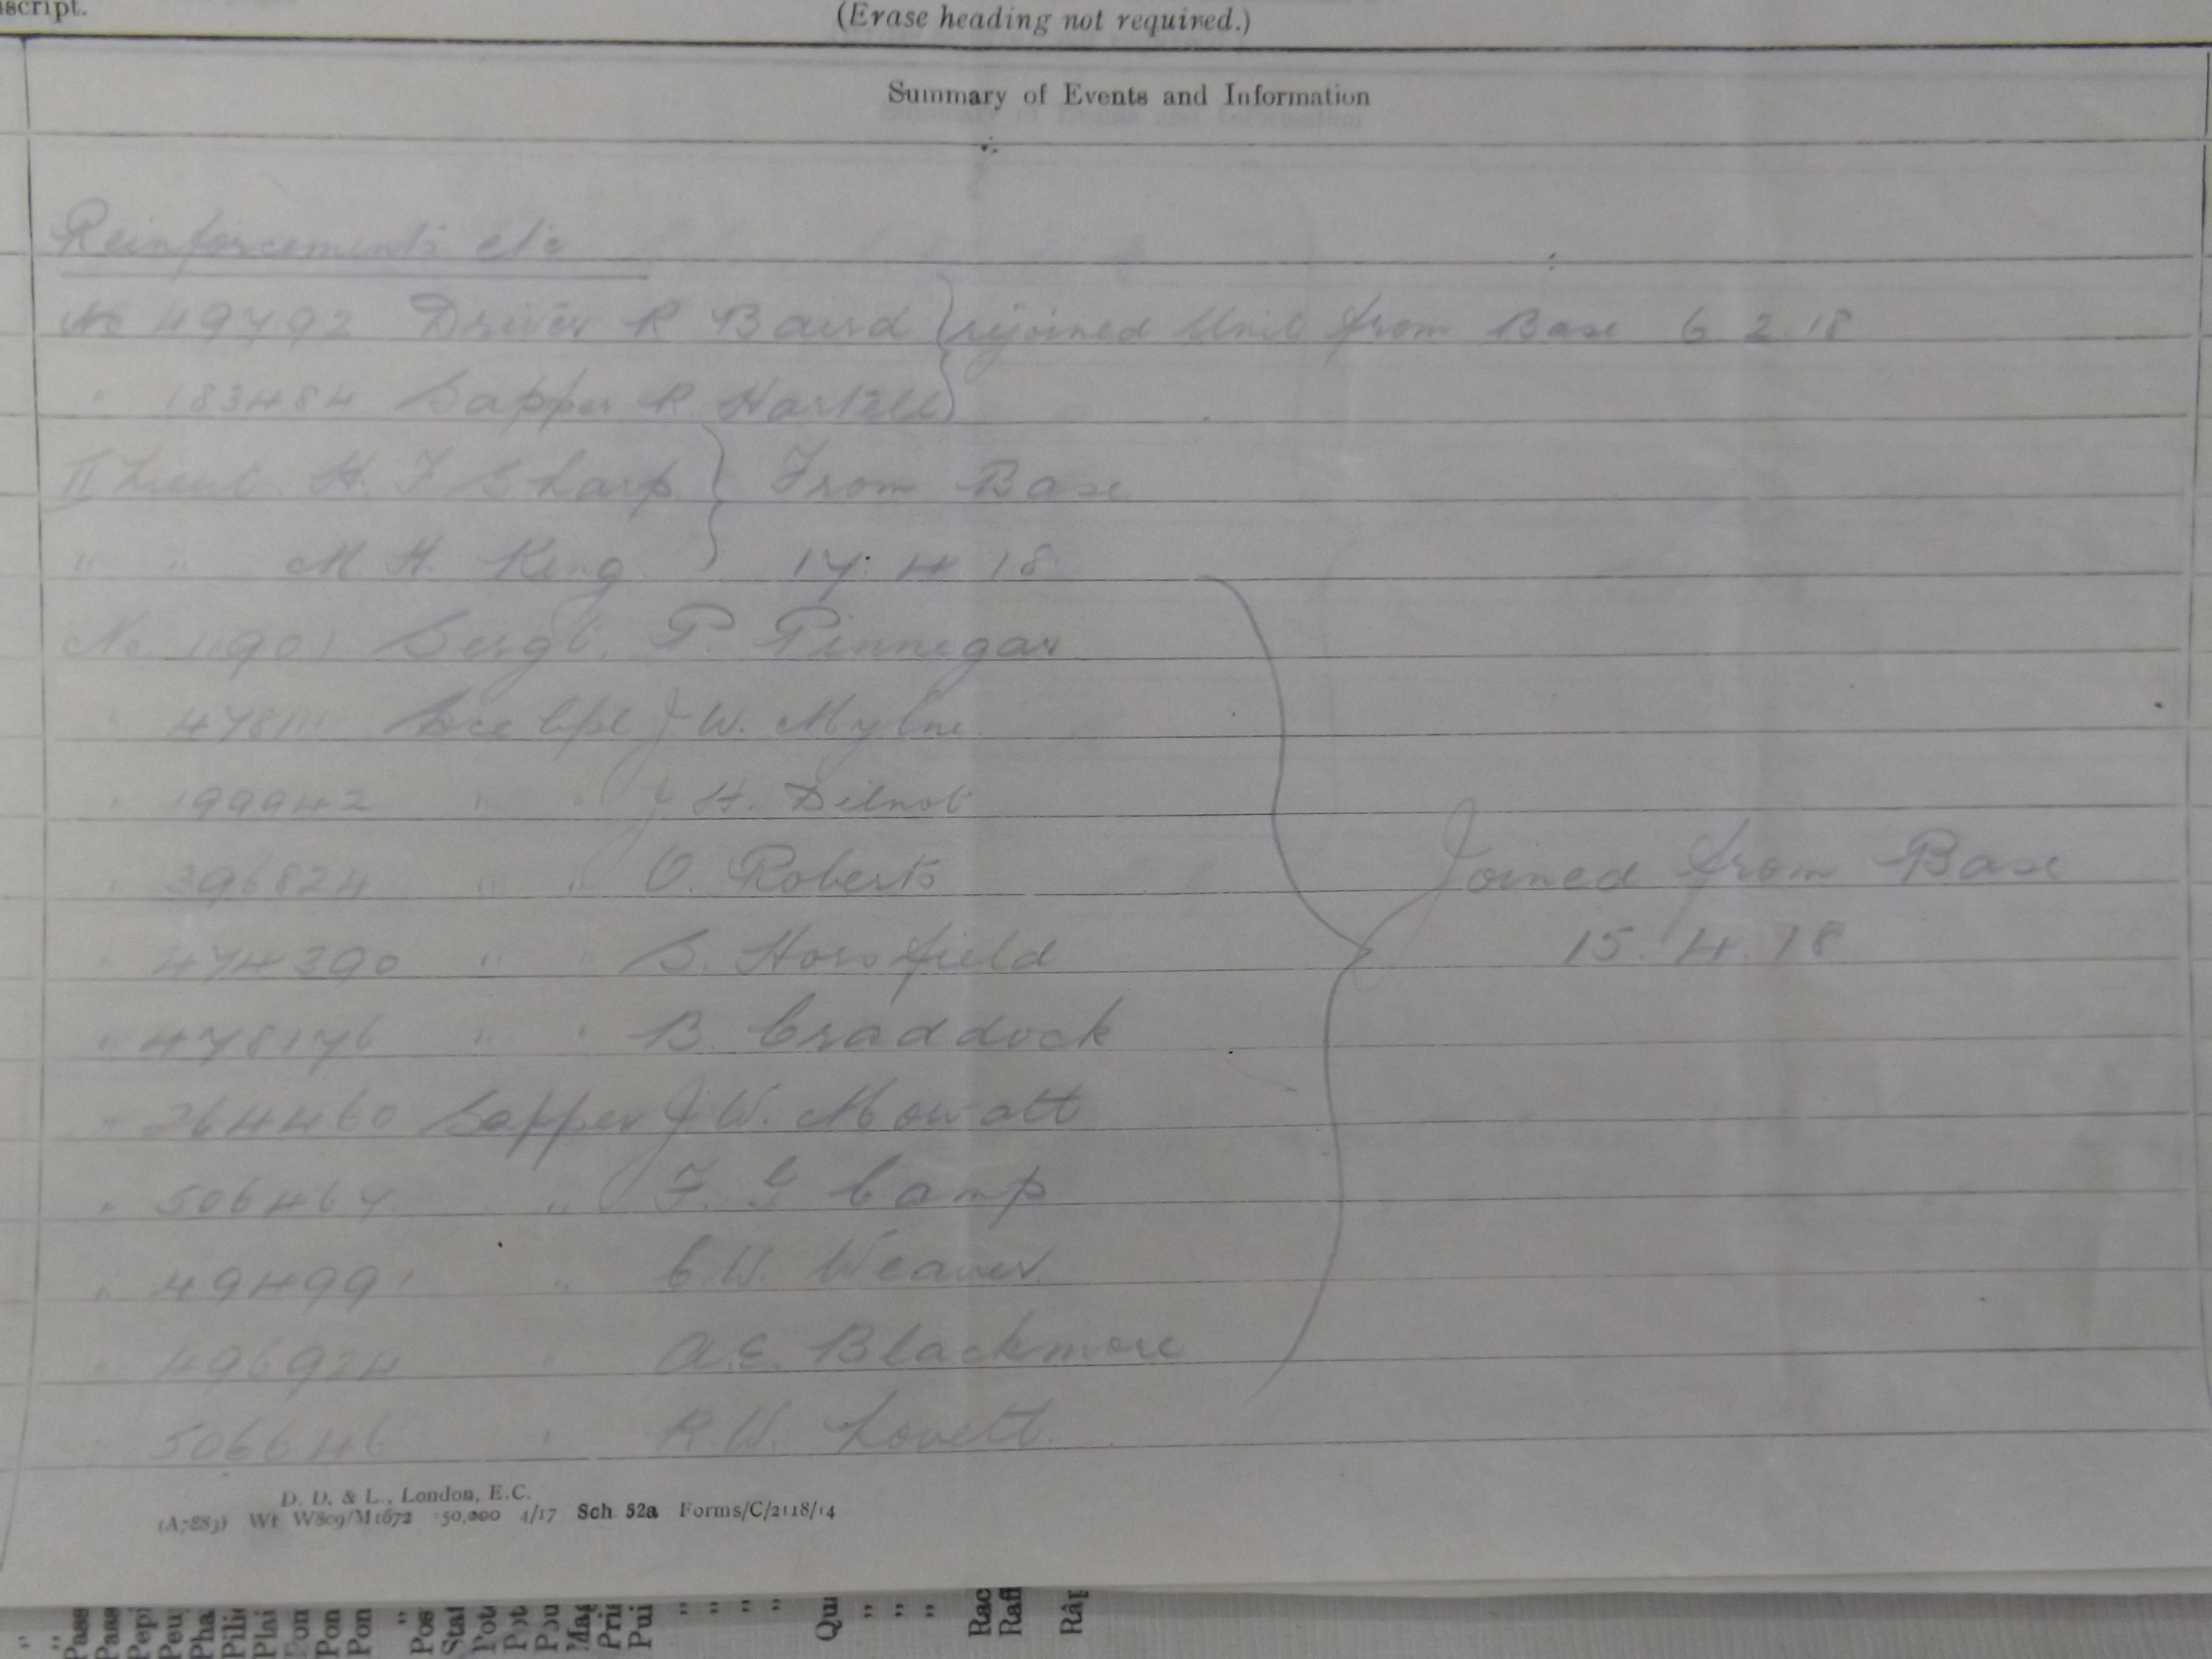 script.
(Erase heading not required.)
Summary of Events and Information
Reinforcements etc
No 49792 Driver R Baird } rejoined Unit from Base 6 2 18
" 183484 Sapper R
II Lieut. H. F Sharp } From Base
" " M H. King } 17. 4 18
No. 11901 Sergt. P. Pinnegar
" Lce Cpl J W. Mylne
" 199942 " " J H. Dilnot
" 396824 " " O. Roberts
" 474390 " " S. Horsfield
" 478176 " " B. Craddock
" 264460 Sapper J W. Mowatt
" 506467 " F. G Camp
" 494991 " C.W. Weaver
" 496924 " A.E. Blackmore
" 506646 " R.W. Lovett
Joined from Base
15. 4. 18
D. D. & L., London, E.C.
(A7883) Wt W809/M1672 350,000 4/17 Sch. 52a Forms/C/2118/14
"
"
Pass
Pass
Pepi
Peu
Pha
Pili
Plai
Pon
Pon
Pon
"
Pos
Stat
Pot
Pot
Pou
Mag
Pri
Pui
"
"
"
"
Qu
"
"
"
Rac
Raff
Râp